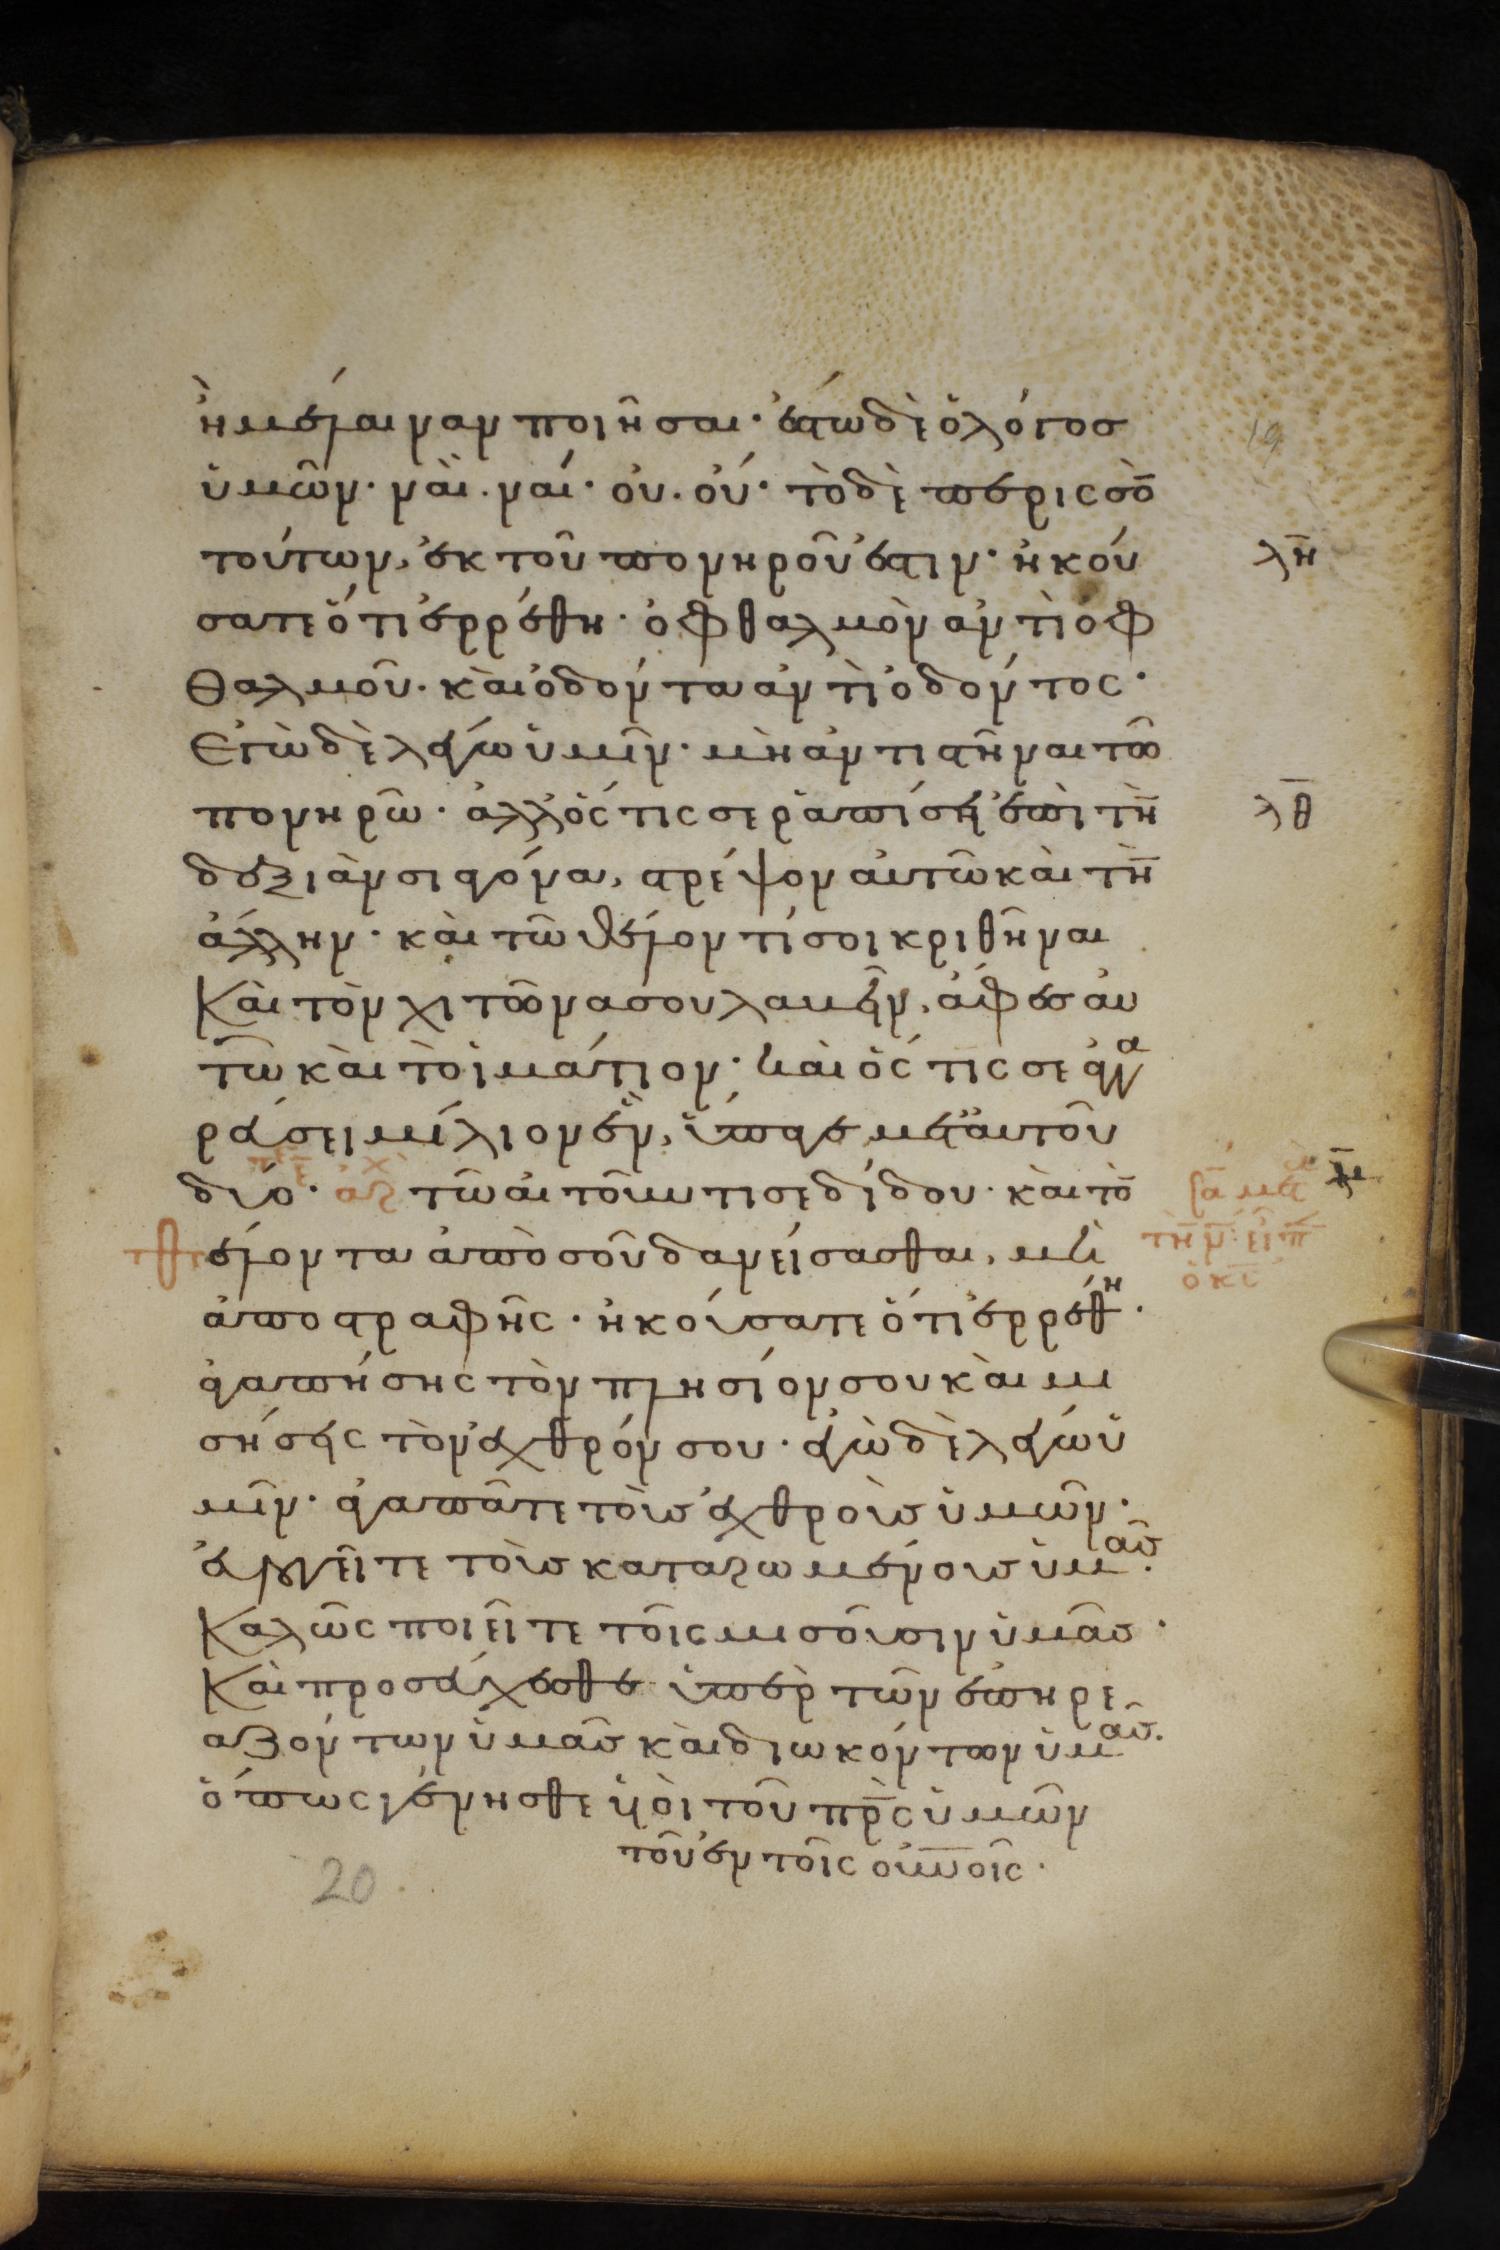 ἢ μέλαιναν ποιῆσαι· ἔστω δὲ ὁ λόγος
ὑμῶν· ναὶ· ναί· οὐ· οὐ· τὸ δὲ περισσὸ̅
τούτων, ἐκ τοῦ πονηροῦ ἐστιν· ἠκού
σατε ὅτι ἐρρέθη· ὀφθαλμὸν ἀντὶ ὀφ
θαλμοῦ· καὶ ὀδόντα ἀντὶ ὀδόντος·
Ἐγὼ δὲ λέγω ὑμῖν· μὴ ἀντιστῆναι τῶ
πονηρῶ· ἀλλ' ὅστις σε ῥαπίσῃ ἐπὶ τὴ̅
δεξιὰν σιαγόνα, στρέψον αὐτῶ καὶ τὴ̅
ἄλλην· καὶ τῶ θέλοντί σοι κριθῆναι
Καὶ τὸν χιτῶνα σου λαβεῖν, ἄφες αὐ
τῶ καὶ τὸ ἱμάτιον· καὶ ὅστις σε ἀγγα
ράσει μίλιον ἕν, ὕπαγε μετ' αὐτοῦ
δύο· τῶ αἰτοῦντι σε δίδου· καὶ τὸ̅
θέλοντα ἀπὸ σοῦ δανείσασθαι, μὴ
ἀποστραφῆς· ἠκούσατε ὅτι ἐρρέθη·
ἀγαπήσης τὸν πλησίον σου καὶ μι
σήσεις τὸν ἐχθρόν σου· ἐγὼ δὲ λέγω ὑ
μῖν· ἀγαπᾶτε τοὺς ἐχθροὺς ὑμῶν·
εὐλογεῖτε τοὺς καταρωμένους ὑμᾶς·
Καλῶς ποιεῖτε τοῖς μισοῦσιν ὑμᾶς·
Καὶ προσεύχεσθε ὑπὲρ τῶν ἐπηρε
αζόντων ὑμᾶς καὶ διωκόντων ὑμᾶς.
ὅπως γένησθε υἱοὶ τοῦ πρ̅ς ὑμῶν
τοῦ ἐν τοῖς οὐν̅οῖς·
λη̅
λθ̅
μ̅
19
20